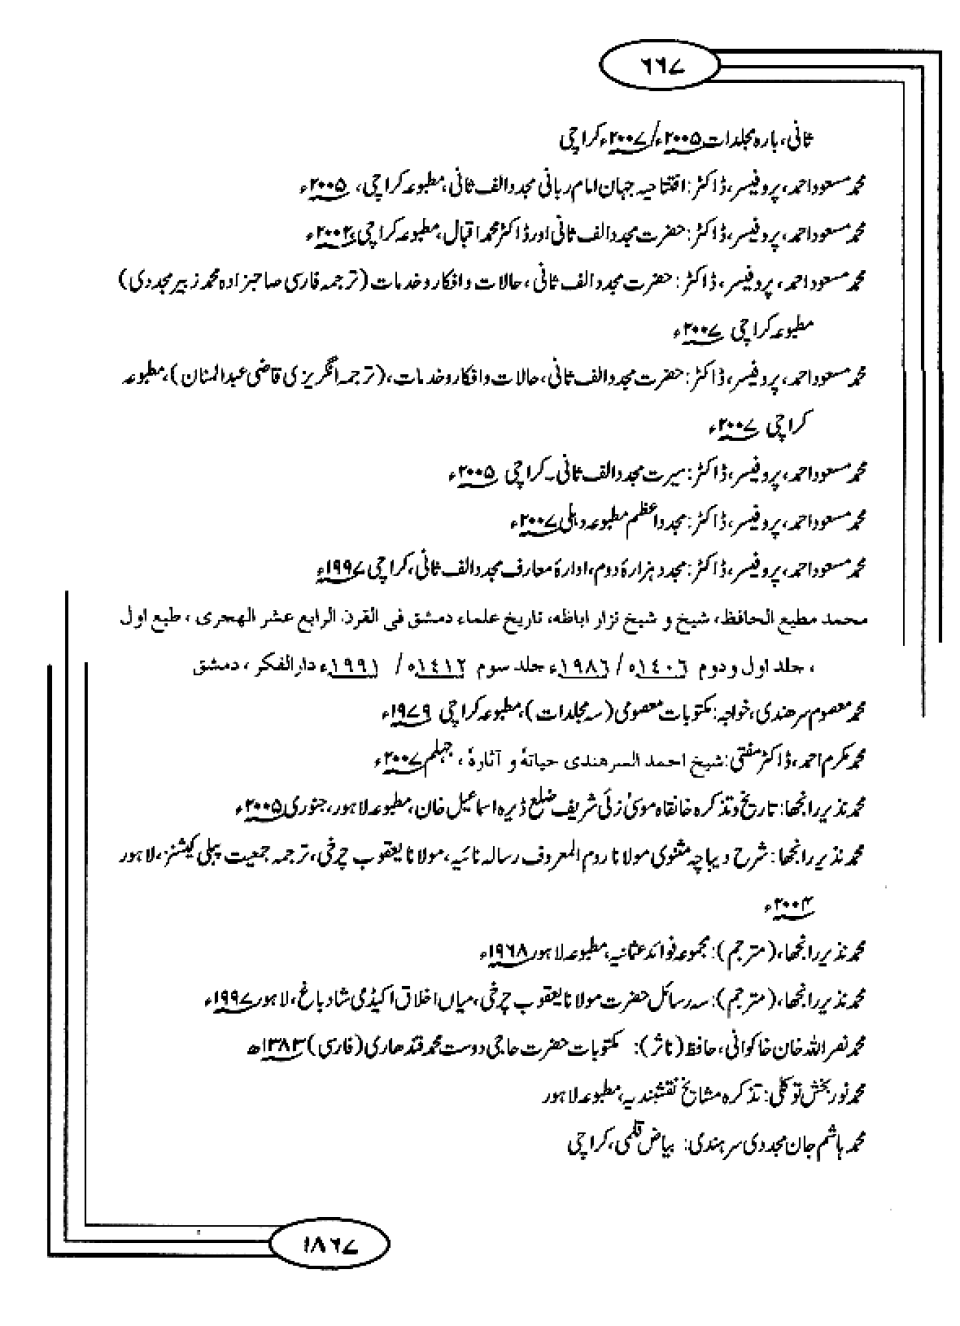 ۶۶۷
ثانی، بارہ مجلدات ۲۰۰۵ء/۲۰۰۷ء کراچی
محمد مسعود احمد، پروفیسر، ڈاکٹر: افتتاحیہ جہان امام ربانی مجدد الف ثانی، مطبوعہ کراچی، ۲۰۰۵ء
محمد مسعود احمد، پروفیسر، ڈاکٹر: حضرت مجدد الف ثانی اور ڈاکٹر محمد اقبال، مطبوعہ کراچی ۲۰۰۲ء
محمد مسعود احمد، پروفیسر، ڈاکٹر: حضرت مجدد الف ثانی، حالات و افکار و خدمات (ترجمہ فارسی صاحبزادہ محمد زبیر مجددی)
مطبوعہ کراچی ۲۰۰۷ء
محمد مسعود احمد، پروفیسر، ڈاکٹر: حضرت مجدد الف ثانی، حالات و افکار و خدمات، (ترجمہ انگریزی قاضی عبدالمنان)، مطبوعہ
کراچی ۲۰۰۷ء
محمد مسعود احمد، پروفیسر، ڈاکٹر: سیرت مجدد الف ثانی۔ کراچی ۲۰۰۵ء
محمد مسعود احمد، پروفیسر، ڈاکٹر: مجدد اعظم مطبوعہ دہلی ۲۰۰۷ء
محمد مسعود احمد، پروفیسر، ڈاکٹر: مجدد ہزارۂ دوم، ادارۂ معارف مجدد الف ثانی، کراچی ۱۹۹۷ء
محمد مطیع الحافظ، شیخ و شیخ نزار اباظہ، تاریخ علماء دمشق فی القرن الرابع عشر الهجری، طبع اول
، جلد اول و دوم ۱٤۰٦ھ/ ۱۹۸٦ء جلد سوم ۱٤۱۲ھ/ ۱۹۹۱ء دارالفکر، دمشق
محمد معصوم سرھندی، خواجہ: مکتوبات معصومی (سہ مجلدات)، مطبوعہ کراچی ۱۹۷۹ء
محمد مکرم احمد، ڈاکٹر مفتی: شیخ احمد السرھندی حیاتهٗ و آثارهٗ، جہلم ۲۰۰۷ء
محمد نذیر رانجھا: تاریخ و تذکرہ خانقاہ موسیٰ زئی شریف ضلع ڈیرہ اسماعیل خان، مطبوعہ لاہور، جنوری ۲۰۰۵ء
محمد نذیر رانجھا: شرح دیباچہ مثنوی مولانا روم المعروف رسالہ نائیہ، مولانا یعقوب چرخی، ترجمہ جمعیت پبلی کیشنز، لاہور
۲۰۰۴ء
محمد نذیر رانجھا، (مترجم): مجموعہ فوائد عثمانیہ، مطبوعہ لاہور ۱۹۶۸ء
محمد نذیر رانجھا، (مترجم): سہ رسائل حضرت مولانا یعقوب چرخی، میاں اخلاق اکیڈمی شاد باغ، لاہور ۱۹۹۷ء
محمد نصر اللہ خان خاکوانی، حافظ (ناشر): مکتوبات حضرت حاجی دوست محمد قندھاری (فارسی) ۱۳۸۳ھ
محمد نور بخش توکلی: تذکرہ مشایخ نقشبندیہ، مطبوعہ لاہور
محمد ہاشم جان مجددی سرہندی: بیاض قلمی، کراچی
۱۸۶۷